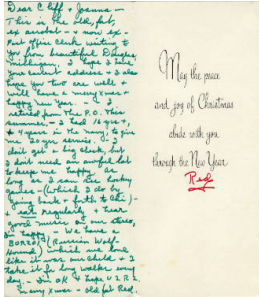 Dear Cliff + Joanna —
This is the old, fat,
ex acrobat - + now ex -
Post office Clerk writing to
you from beautiful
Michigan. I hope I have
your current address + also
hope you two are well +
will have a merry Xmas +
happy new year. I
retired from the P.O. this
summer - I had 16 yrs +,
+ 4 years in the navy, to give
me 20 yrs service. I
don't get a big check, but
I don't need an awful lot
to keep me happy as
long as I can see hockey
games - (which I do by
going back + forth to the)
- eat regularly + hear
good music on our stereo,
I'm happy - We have a
BORZOI (Russian Wolf
Hound) which we love
like it was our child + I
take it for long walks every
day. - I'm OK + hope U 2 R 2.
Merry Xmas - old fat Red.
May the peace
and joy of Christmas
abide with you
through the New Year
Red